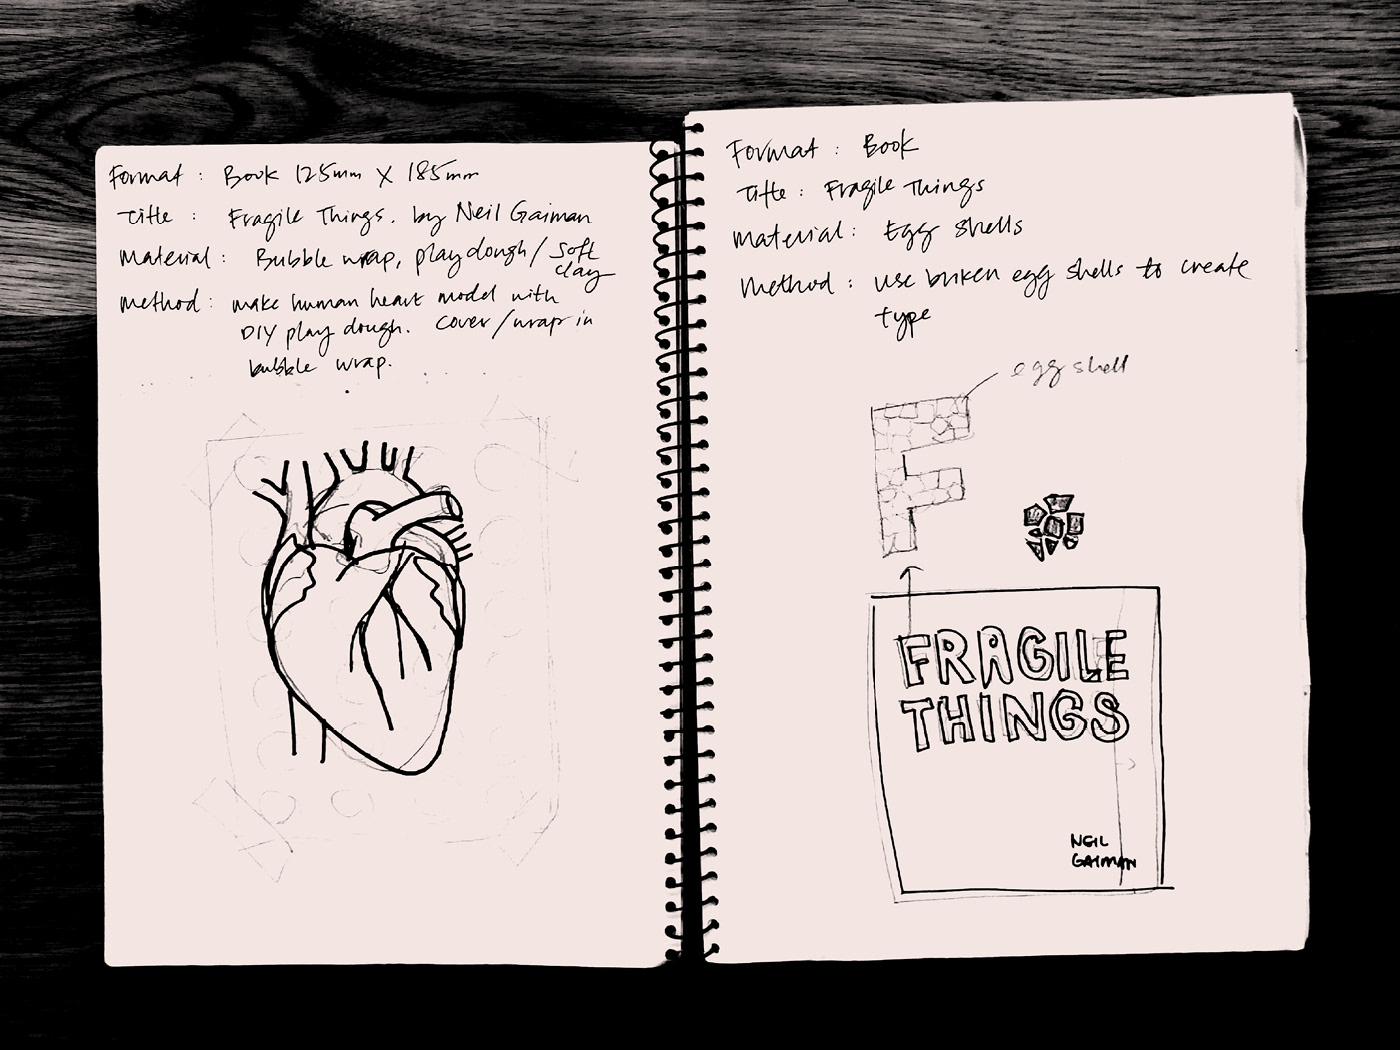 Format : Book 125mm X 185mm
Title : Fragile Things. by Neil Gaiman
Material : Bubble wrap, playdough / soft
clay
Method : make human heart model with
DIY play dough. cover / wrap in
bubble wrap.
Format : Book
Title : Fragile Things
Material : Egg shells
Method : use broken egg shells to create
type
egg shell
F
FRAGILE
THINGS
NEIL
GAIMAN